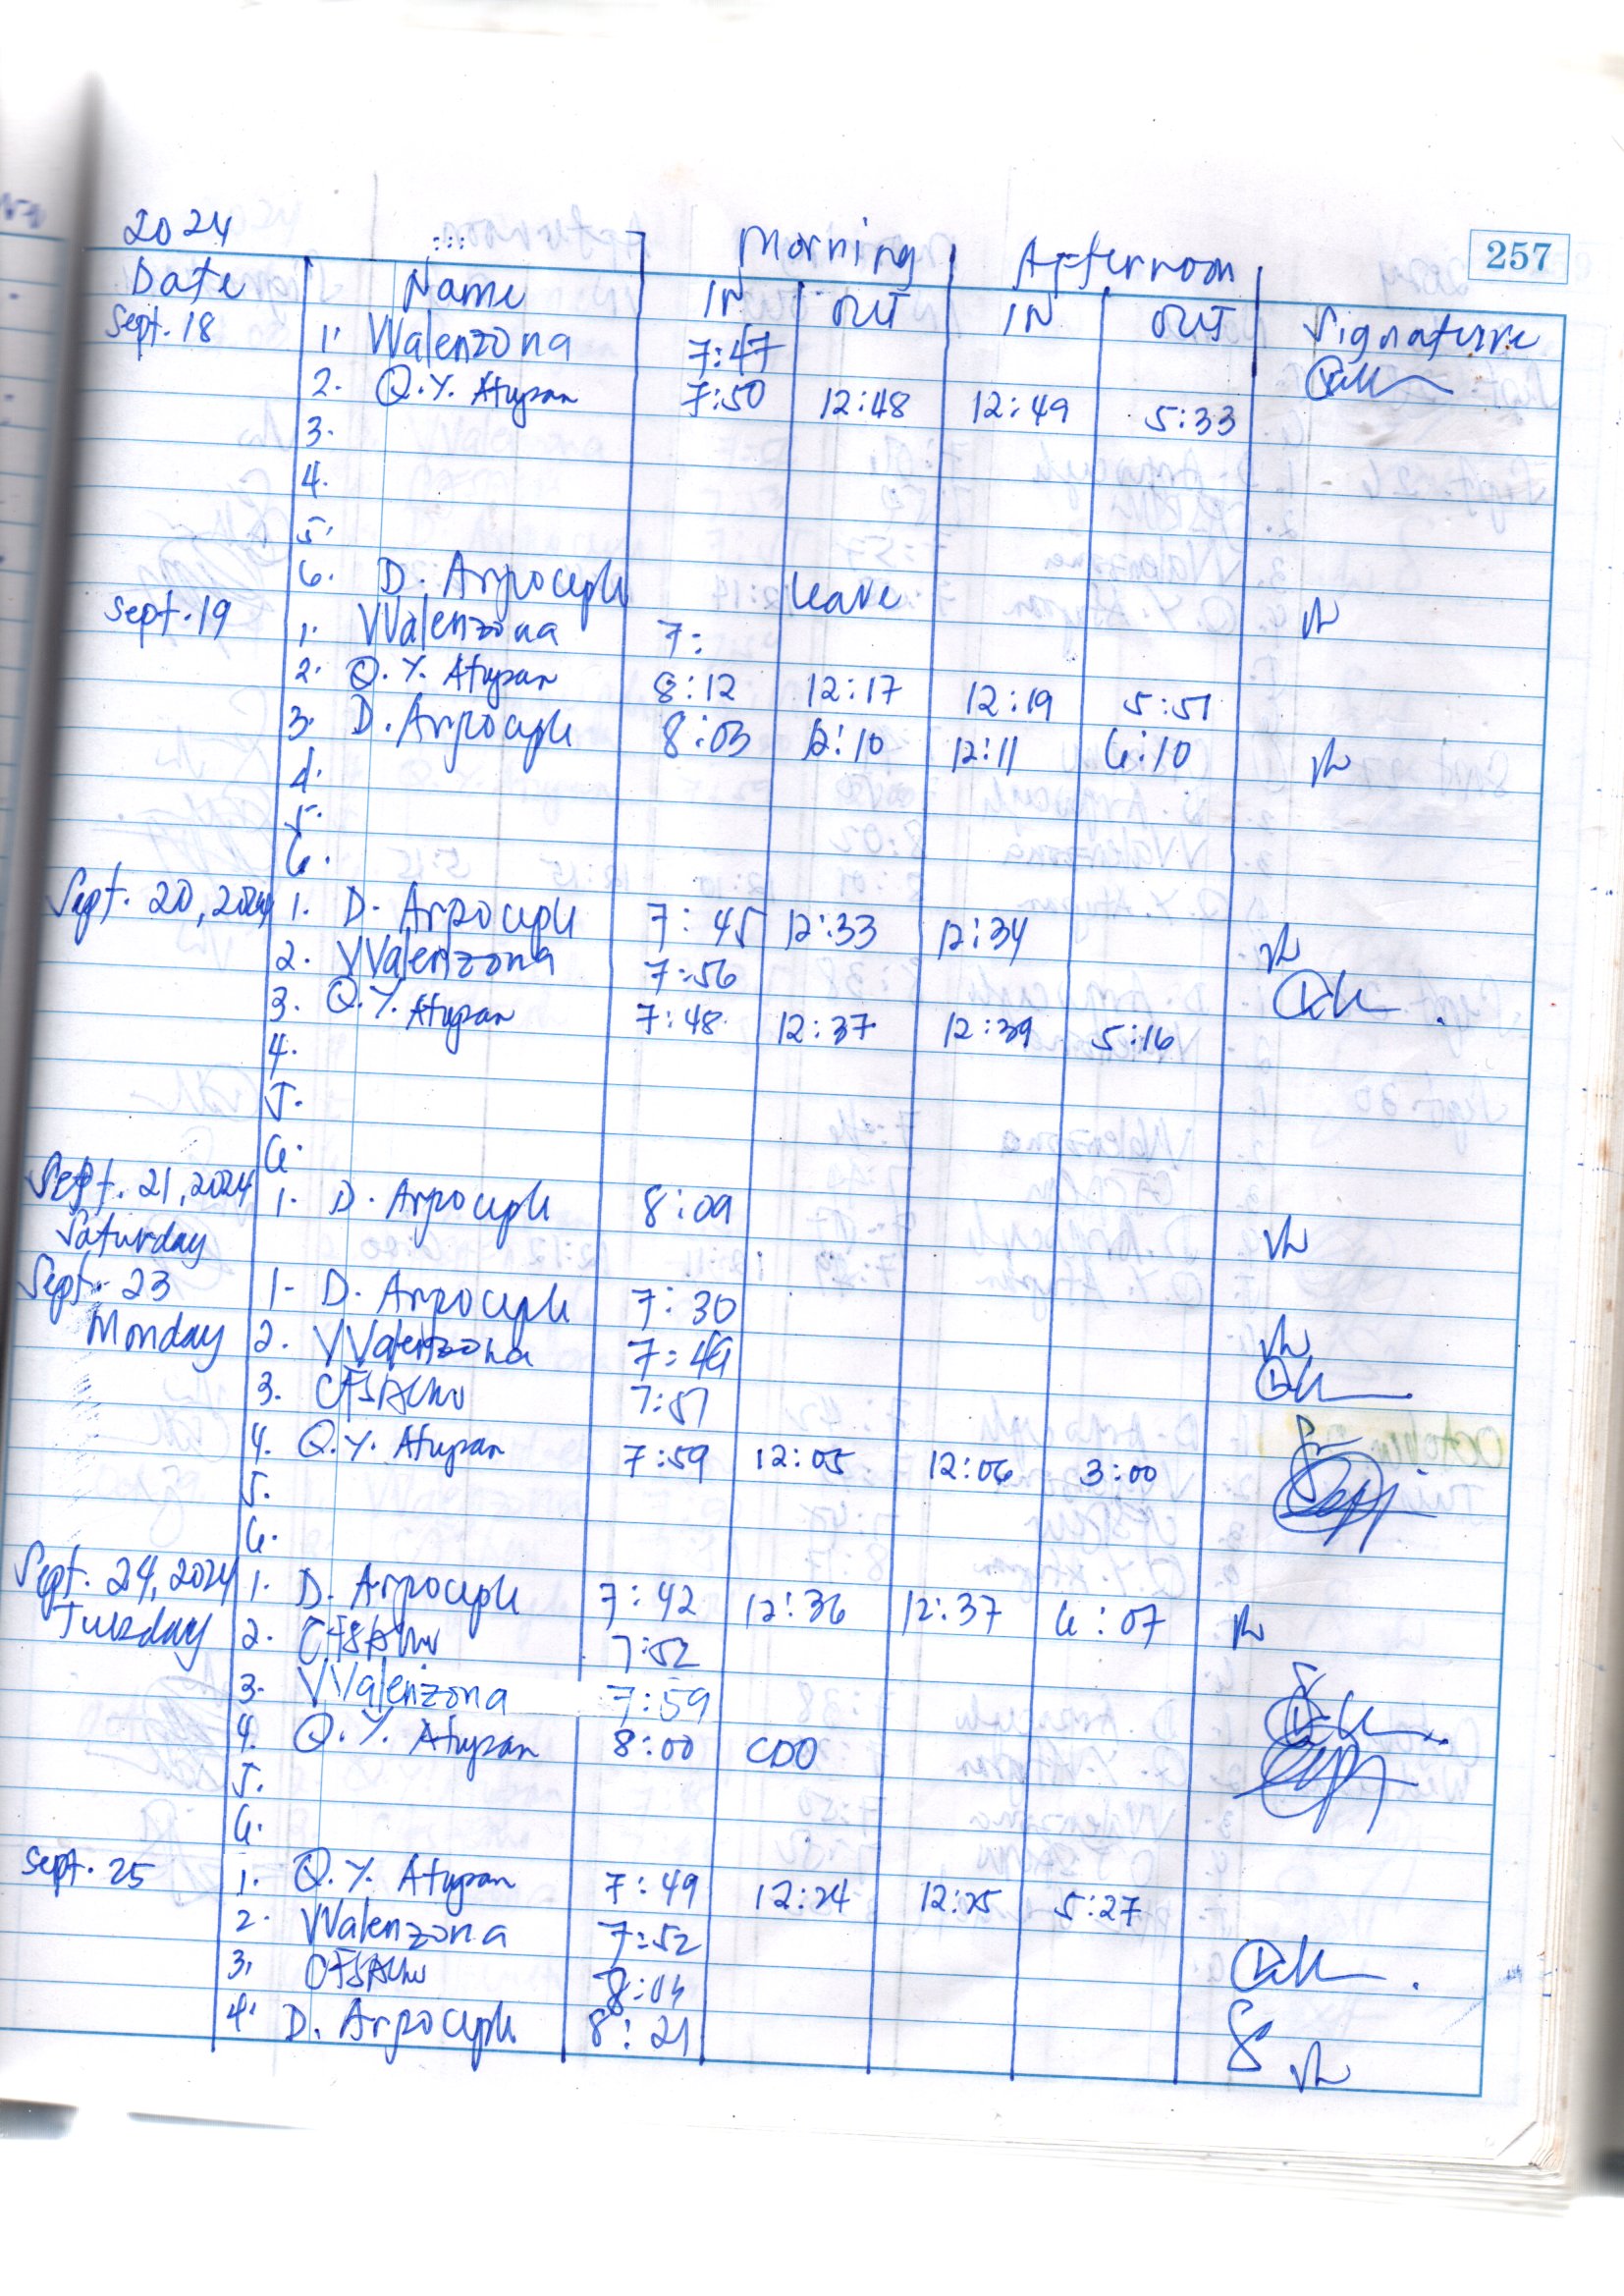 257
2024 Morning Afternoon
Date Name IN OUT IN OUT Signature
Sept. 18 1. VValenzona 7:47
2. Q.Y. Atupan 7:50 12:48 12:49 5:33
3.
4.
5.
6. D. Arpoceple leave
Sept. 19 1. VValenzona 7:
2. Q.Y. Atupan 8:12 12:17 12:19 5:51
3. D. Arpoceple 8:03 12:10 12:11 6:10
4.
5.
6.
Sept. 20, 2024 1. D. Arpoceple 7:45 12:33 12:34
2. VValenzona 7:56
3. Q.Y. Atupan 7:48 12:37 12:39 5:16
4.
5.
6.
Sept. 21, 2024 1. D. Arpoceple 8:09
Saturday
Sept. 23 1- D. Arpoceple 7:30
Monday 2. VValenzona 7:49
3. 7:51
4. Q.Y. Atupan 7:59 12:05 12:06 3:00
5.
6.
Sept. 24, 2024 1. D. Arpoceple 7:42 12:36 12:37 6:07
Tuesday 2. 7:52
3. VValenzona 7:59
4. Q.Y. Atupan 8:00 CDO
5.
6.
Sept. 25 1. Q.Y. Atupan 7:49 12:24 12:25 5:27
2. VValenzona 7:52
3. 8:03
4. D. Arpoceple 8:21